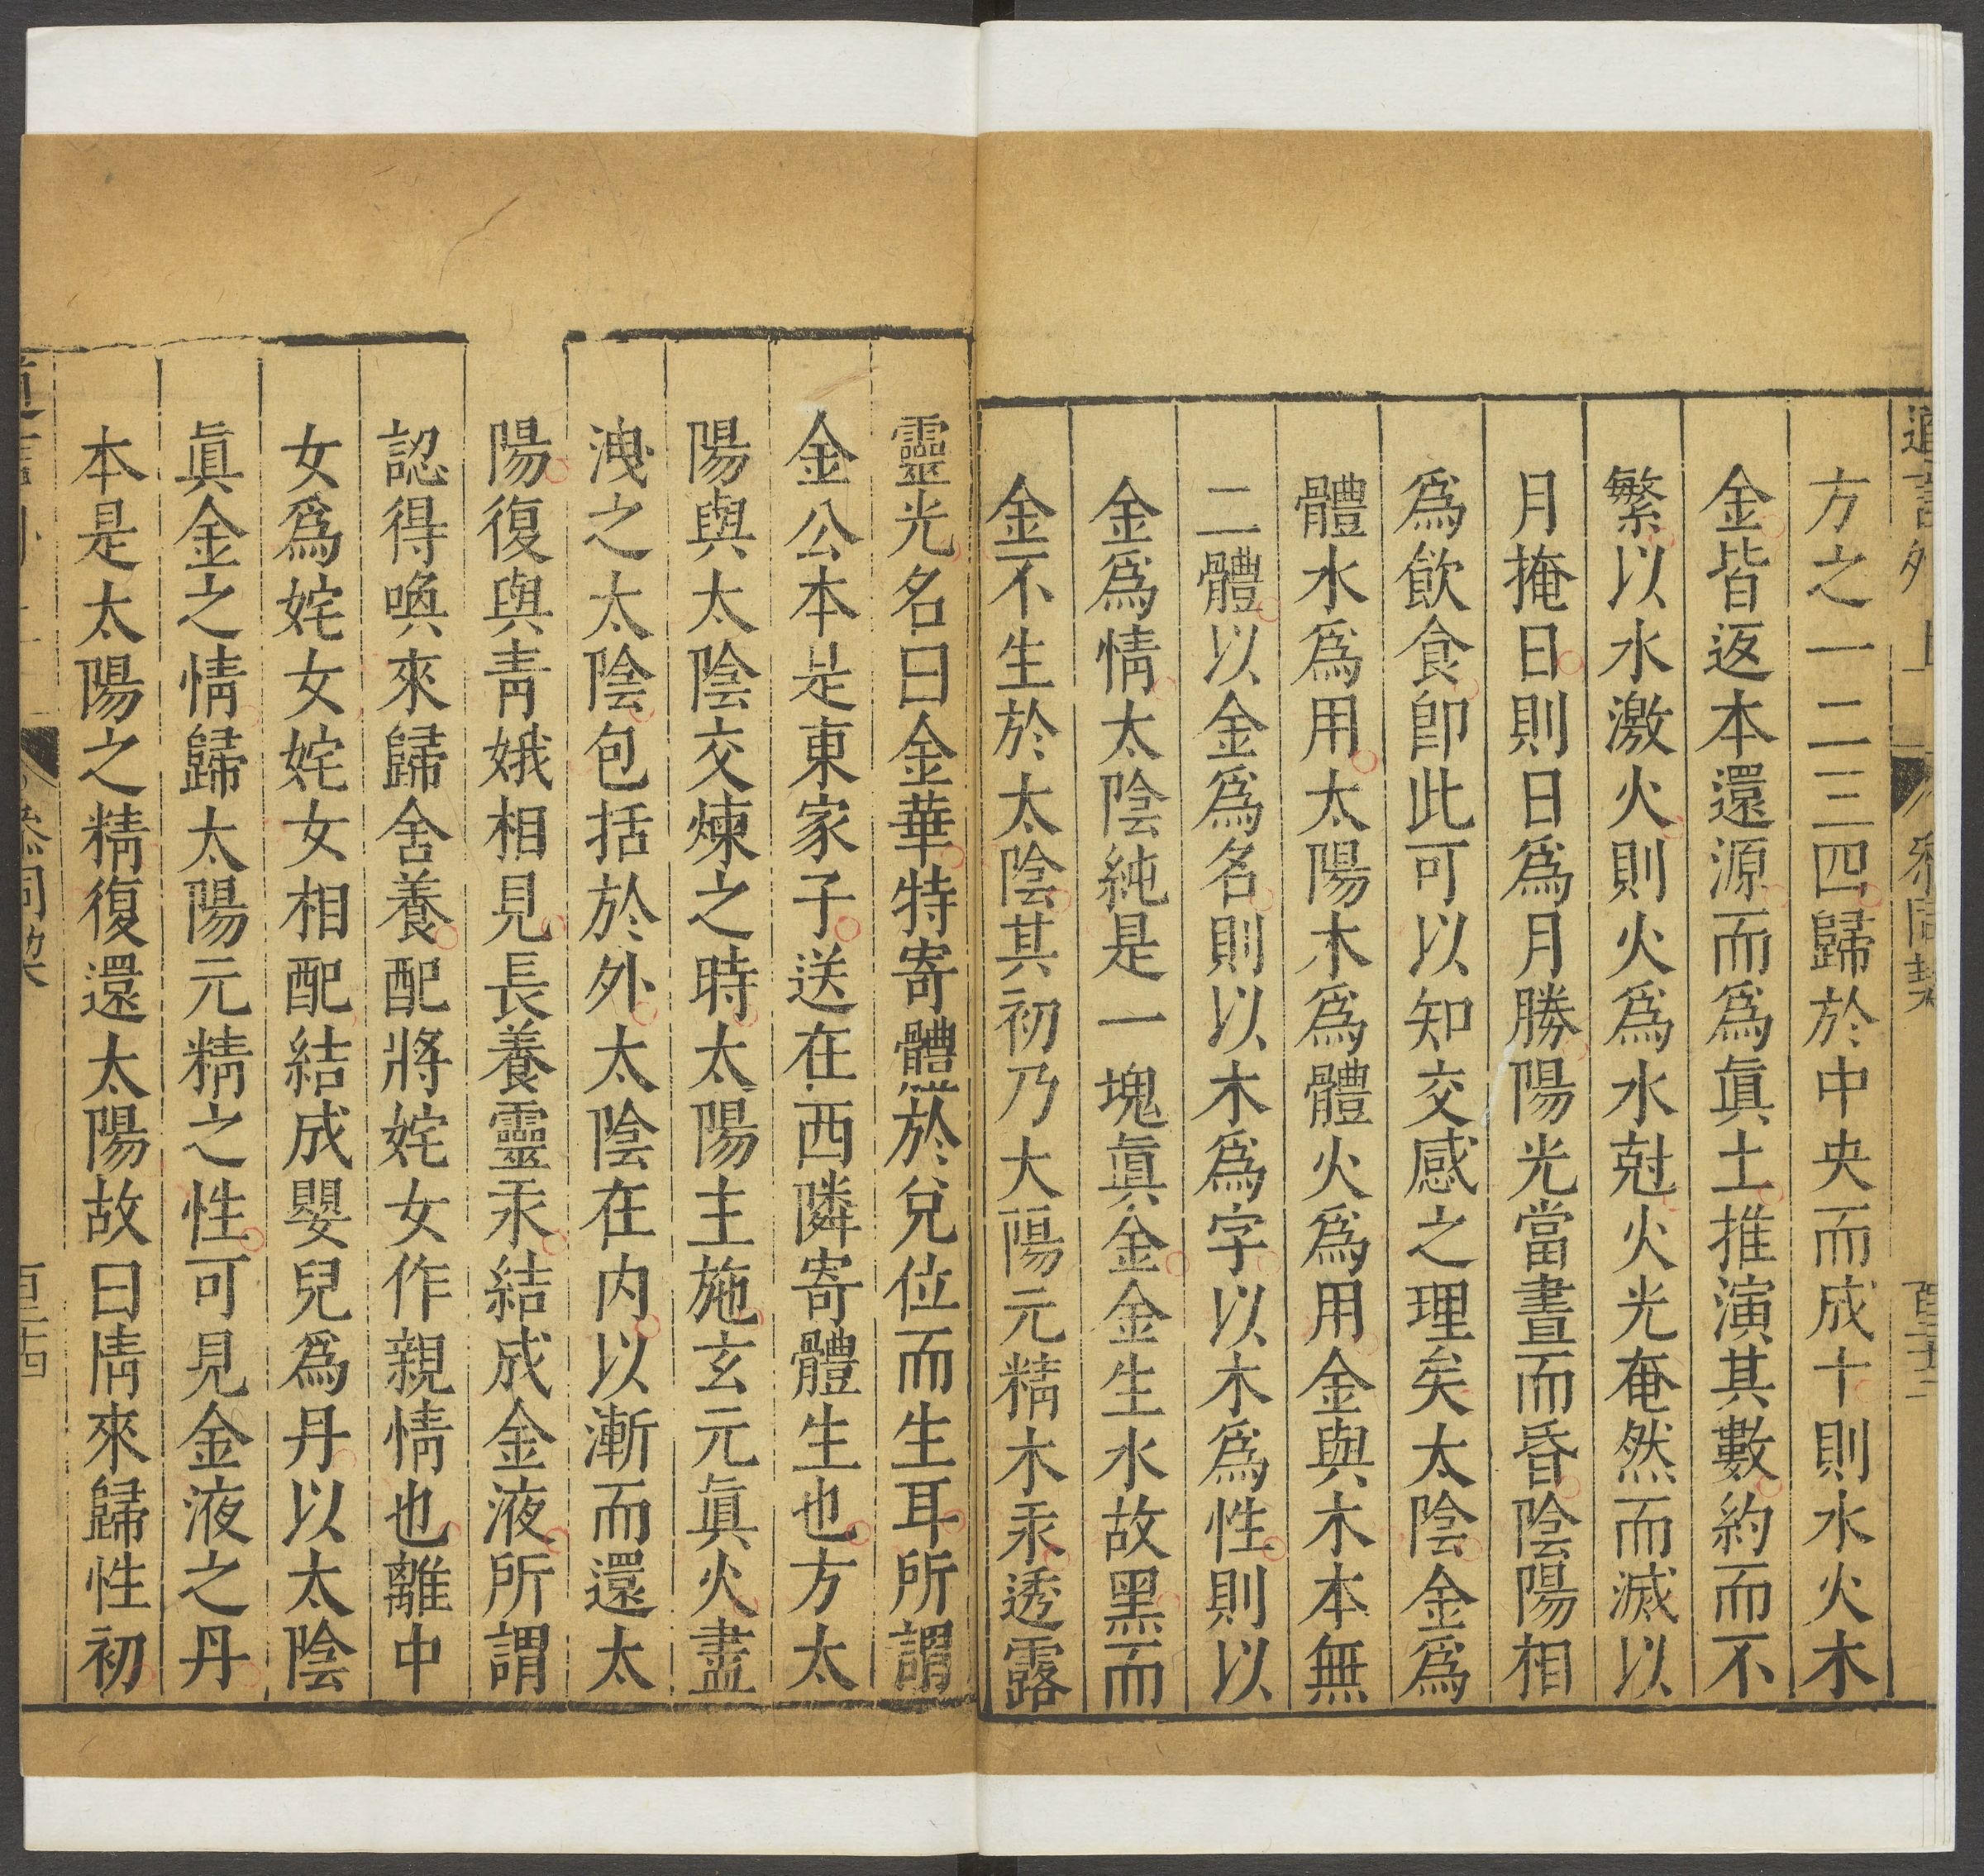 方之一二三四歸於中央而成十則水火木
金皆返本還源而爲眞土推演其數約而不
繁以水激火則火爲水尅火光奄然而滅以
月掩日則日爲月勝陽光當晝而昏陰陽相
爲飲食卽此可以知交感之理矣太陰金爲
體水爲用太陽木爲體火爲用金與木本無
二體以金爲名則以木爲字以木爲性則以
金爲情太陰純是一塊眞金金生水故黑而
金不生於太陰其初乃大陽元精木汞透露
靈光名曰金華特寄體於兌位而生耳所謂
金公本是東家子送在西隣寄體生也方太
陽與太陰交煉之時太陽主施玄元眞火盡
洩之太陰包括於外太陰在内以漸而還太
陽復與靑娥相見長養靈汞結成金液所謂
認得喚來歸舍養配將姹女作親情也離中
女爲姹女姹女相配結成嬰兒爲丹以太陰
眞金之情歸太陽元精之性可見金液之丹
本是太陽之精復還太陽故曰情來歸性初